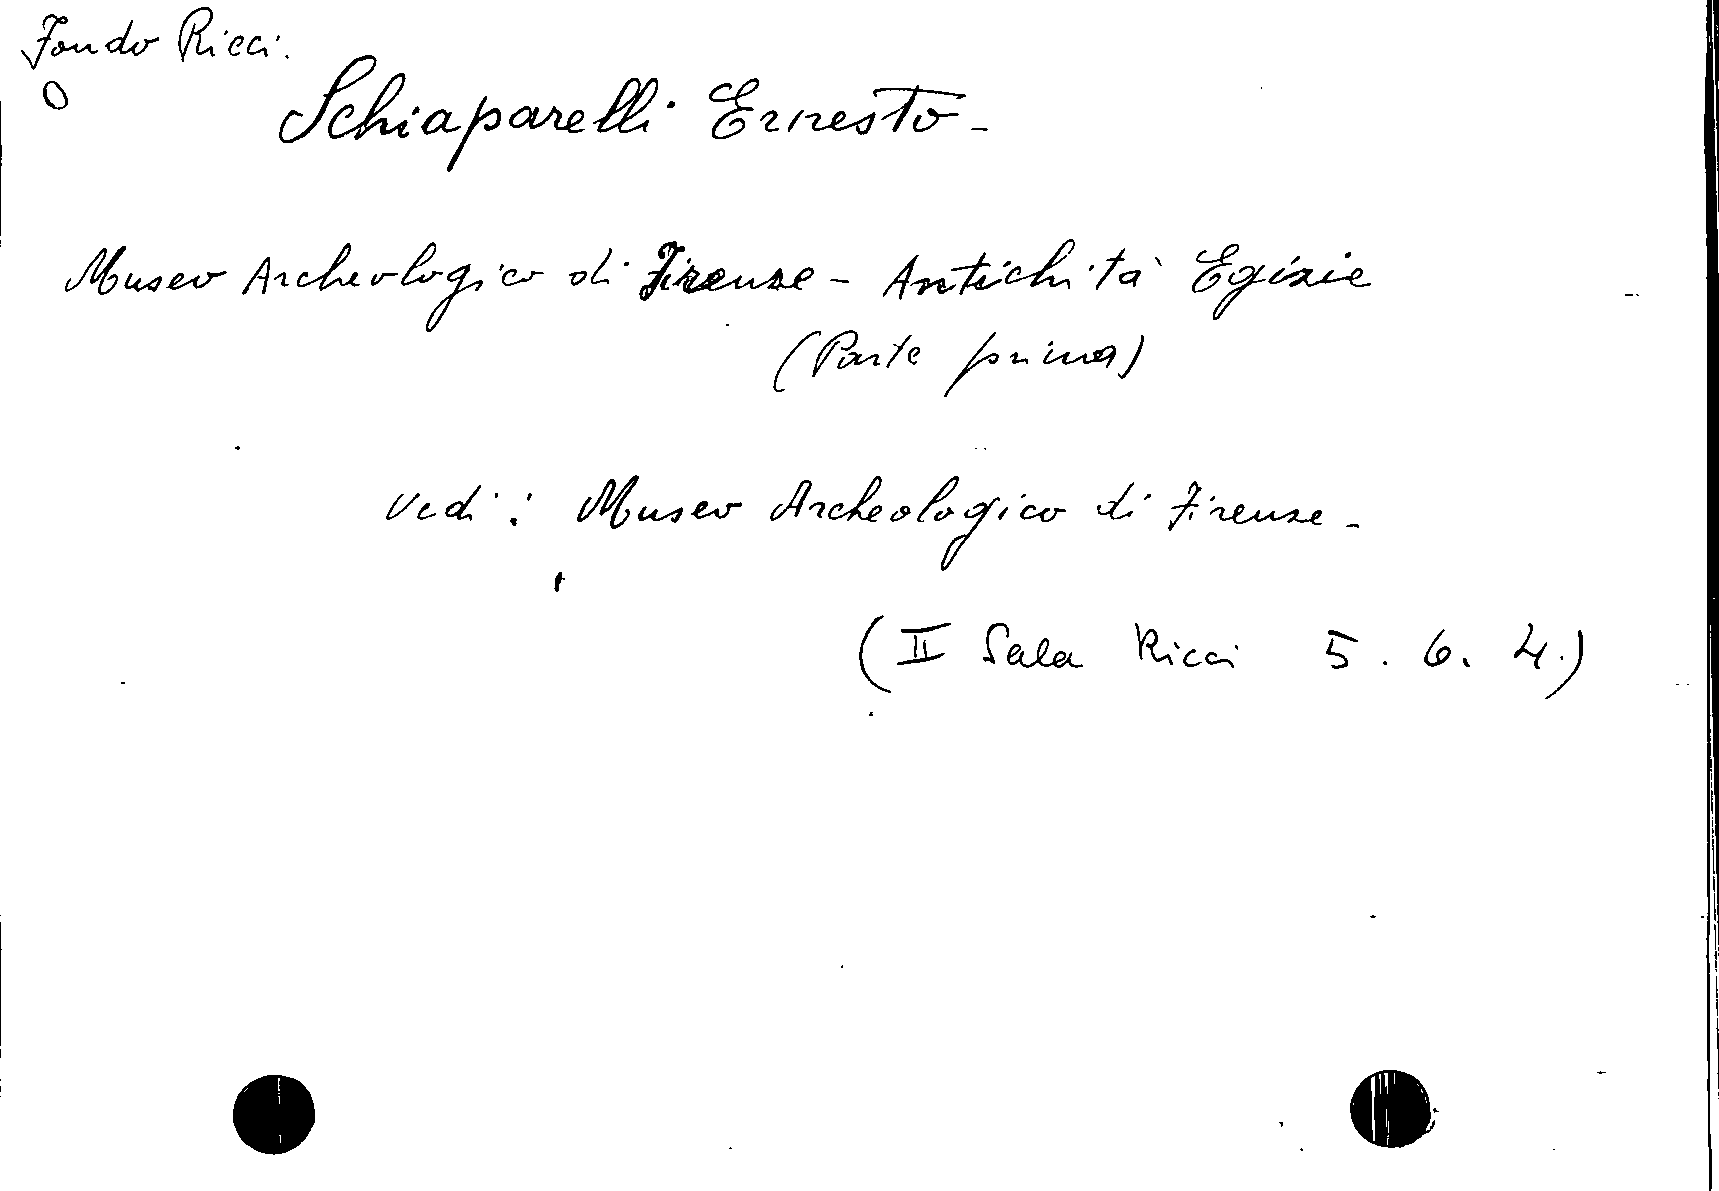 Fondo Ricci.
O
Schiaparelli Ernesto -
Museo Archeologico di Firenze - Antichità Egizie
(Parte prima)
Vedi: Museo Archeologico di Firenze -
(II Sala Ricci 5. 6. 4.)